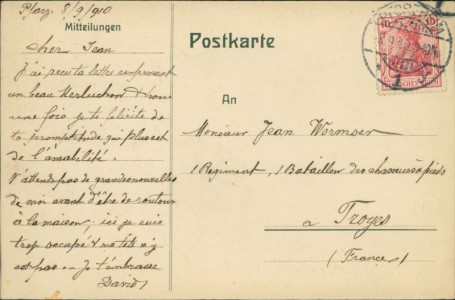 Pforz. 8/9/910
Mitteilungen
Cher Jean
J'ai reçu ta lettre renfermant
un beau & nous
une fois je te félicite de
ta promptitude qui plus est
de l'amabilité.
N'attends pas de grandes nouvelles
de moi avant d'être de retour
à la maison; ici je suis
trop occupé & ma tête n'y
est pas -- Je t'embrasse
David
Postkarte
An
Monsieur Jean Wormser
1 Regiment, 1 Bataillon des chasseurs à pieds
à Troyes
(France)
PFORZHEIM